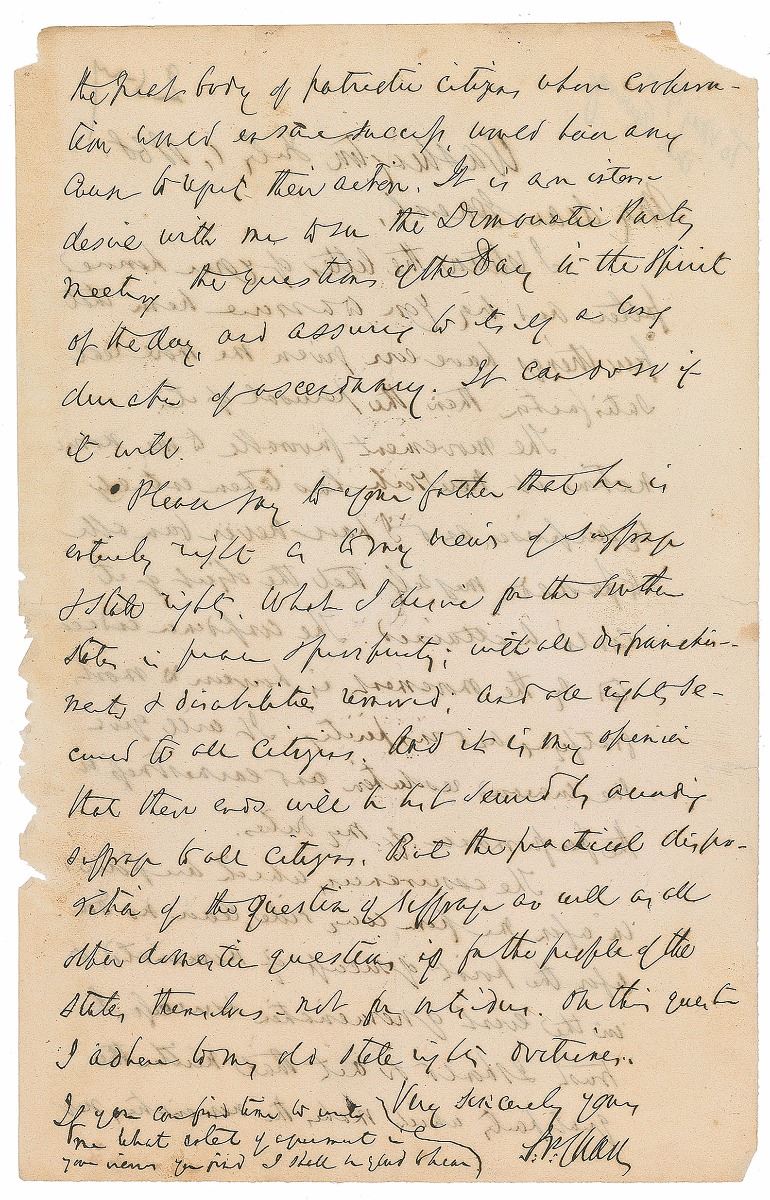 the great body of patriotic citizens whose coopera-
tion would ensure success, would have any
cause to regret their action. It is an intense
desire with me to see the Democratic Party
meeting the questions of the Day in the Spirit
of the day, and assuring to itself a long
duration of ascendancy. It can do so if
it will.
Please say to your father that he is
entirely right as to my views of Suffrage
& State rights. What I desire for the Southern
States is peace & prosperity; with all disfranchise-
ments & disabilities removed, and all rights se-
cured to all citizens. And it is my opinion
that these ends will be best secured by according
suffrage to all citizens. But the practical dispo-
sition of the question of Suffrage as well as all
other domestic questions is for the people of the
States themselves - not for outsiders. On this question
I adhere to my old State rights doctrines.
Very sincerely yours
S. P. Chase
If you can find time to write
me what extent of agreement in
your views you find I shall be glad to hear